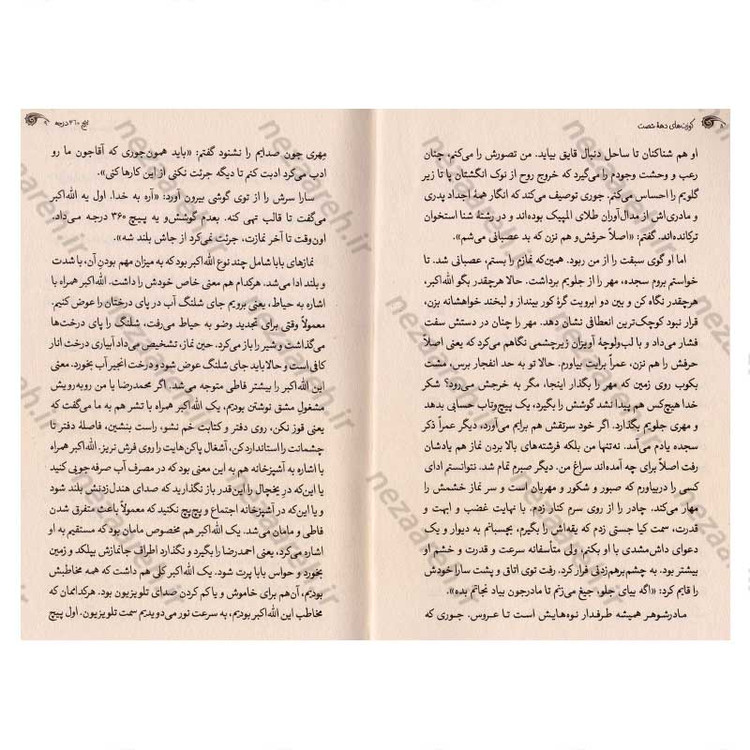 ۸ کوزت‌های دههٔ شصت
او هم شناکنان تا ساحل دنبال قایق بیاید. من تصورش را می‌کنم، چنان
رعب و وحشت وجودم را می‌گیرد که خروج روح از نوک انگشتان پا تا زیر
گلویم را احساس می‌کنم. جوری توصیف می‌کند که انگار همهٔ اجداد پدری
و مادری‌اش از مدال‌آوران طلای المپیک بوده‌اند و در رشتهٔ شنا استخوان
ترکانده‌اند. گفتم: «اصلاً حرفش‌و هم نزن که بد عصبانی می‌شم».
اما او گوی سبقت را از من ربود. همین‌که نمازم را بستم، عصبانی شد. تا
خواستم بروم سجده، مهر را از جلویم برداشت. حالا هرچقدر بگو الله‌اکبر،
هرچقدر نگاه کن و بین دو ابرویت گره کور بینداز و لبخند خواهشانه بزن،
قرار نبود کوچک‌ترین انعطافی نشان دهد. مهر را چنان در دستش سفت
فشار می‌داد و با لب‌ولوچهٔ آویزان زیرچشمی نگاهم می‌کرد که یعنی اصلاً
حرفش را هم نزن، عمراً برایت بیاورم. حالا تو به حد انفجار برس، مشت
بکوب روی زمین که مهر را بگذار اینجا، مگر به خرجش می‌رود؟ شکر
خدا هیچ‌کس هم پیدا نشد گوشش را بگیرد، یک پیچ‌وتاب حسابی بدهد
و مهری جلویم بگذارد. اگر خود سرتقش هم برایم می‌آورد، دیگر عمراً ذکر
سجده یادم می‌آمد. نه‌تنها من بلکه فرشته‌های بالا بردن نماز هم یادشان
رفت اصلاً برای چه آمده‌اند سراغ من. دیگر صبرم تمام شد. نتوانستم ادای
کسی را دربیاورم که صبور و شکور و مهربان است و سر نماز خشمش را
مهار می‌کند. چادر را از روی سرم کنار زدم. با نهایت غضب و ابهت و
قدرت، سمت کیا جستی زدم که یقه‌اش را بگیرم، بچسبانم به دیوار و یک
دعوای داش‌مشدی با او بکنم، ولی متأسفانه سرعت و قدرت و خشم او
بیشتر بود. به چشم‌برهم‌زدنی فرار کرد. رفت توی اتاقی و پشت سارا خودش
را قایم کرد: «اگه بیای جلو، جیغ می‌زنم تا مادرجون بیاد نجاتم بده».
مادرشوهر همیشه طرفدار نوه‌هایش است تا عروس. جوری که
پیچ ۳۶۰ درجه ۹
مهری جون صدایم را نشنود گفتم: «باید همون‌جوری که آقاجون ما رو
ادب می‌کرد ادبت کنم تا دیگه جرئت نکنی از این کارها کنی».
سارا سرش را از توی گوشی بیرون آورد: «آره به خدا. اول یه الله‌اکبر
می‌گفت تا قالب تهی کنه. بعدم گوشش‌و یه پیچ ۳۶۰ درجه می‌داد.
اون‌وقت تا آخر نمازت، جرئت نمی‌کرد از جاش بلند شه».
نمازهای بابا شامل چند نوع الله‌اکبر بود که به میزان مهم بودنِ آن، با شدت
و بلند ادا می‌شد. هرکدام هم معنی خاص خودش را داشت. الله‌اکبر همراه با
اشاره به حیاط، یعنی برویم جای شلنگ آب در پای درختان را عوض کنیم.
معمولاً وقتی برای تجدید وضو به حیاط می‌رفت، شلنگ را پای درخت‌ها
می‌گذاشت و شیر را باز می‌کرد. حین نماز، تشخیص می‌داد آبیاری درخت انار
کافی است و حالا باید جای شلنگ عوض شود و درخت انجیر آب بخورد. معنی
این الله‌اکبر را بیشتر فاطی متوجه می‌شد. اگر محمدرضا یا من روبه‌رویش
مشغول مشق نوشتن بودیم، یک الله‌اکبر همراه با تشر هم به ما می‌گفت که
یعنی قوز نکن، روی دفتر و کتابت خم نشو، راست بنشین، فاصلهٔ دفتر تا
چشمانت را استاندارد کن، آشغال پاکن‌هایت را روی فرش نریز. الله‌اکبر همراه
با اشاره به آشپزخانه هم به این معنی بود که در مصرف آب صرفه‌جویی کنید
یا این‌که درِ یخچال را این‌قدر باز نگذارید که صدای هندل‌زدنش بلند شود
و یا این‌که در آشپزخانه اجتماع و پچ‌پچ نکنید که معمولاً باعث متفرق شدن
فاطی و مامان می‌شد. یک الله‌اکبر هم مخصوص مامان بود که مستقیم به او
اشاره می‌کرد، یعنی احمدرضا را بگیرد و نگذارد اطراف جانمازش بپلکد و زمین
بخورد و حواس بابا پرت شود. یک الله‌اکبر کلی هم داشت که همه مخاطبش
بودیم، آن‌هم برای خاموش و یا کم کردن صدای تلویزیون بود. هرکداممان که
مخاطب این الله‌اکبر بودیم، به سرعت نور می‌دویدیم سمت تلویزیون. اول پیچ
nezaareh.ir